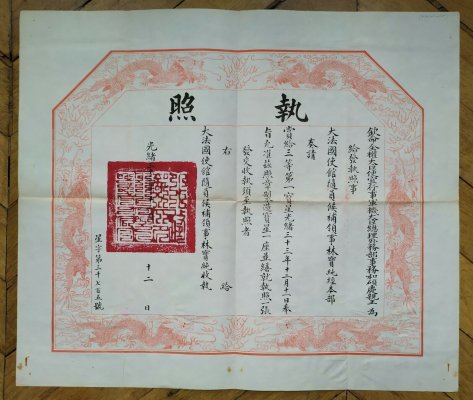 執照
欽命全權大臣便宜行事軍機大臣總理外務部事務和碩慶親王為
給發執照事
大法國使館隨員候補領事林寶純經本部
奏請
賞給三等第一寶星光緒三十三年十二月十一日奉
旨允准茲照章製造寶星一座並繕就執照一張
發交收執須至執照者
右給
大法國使館隨員候補領事林寶純收執
光緒十二日
星字第三千七百五號